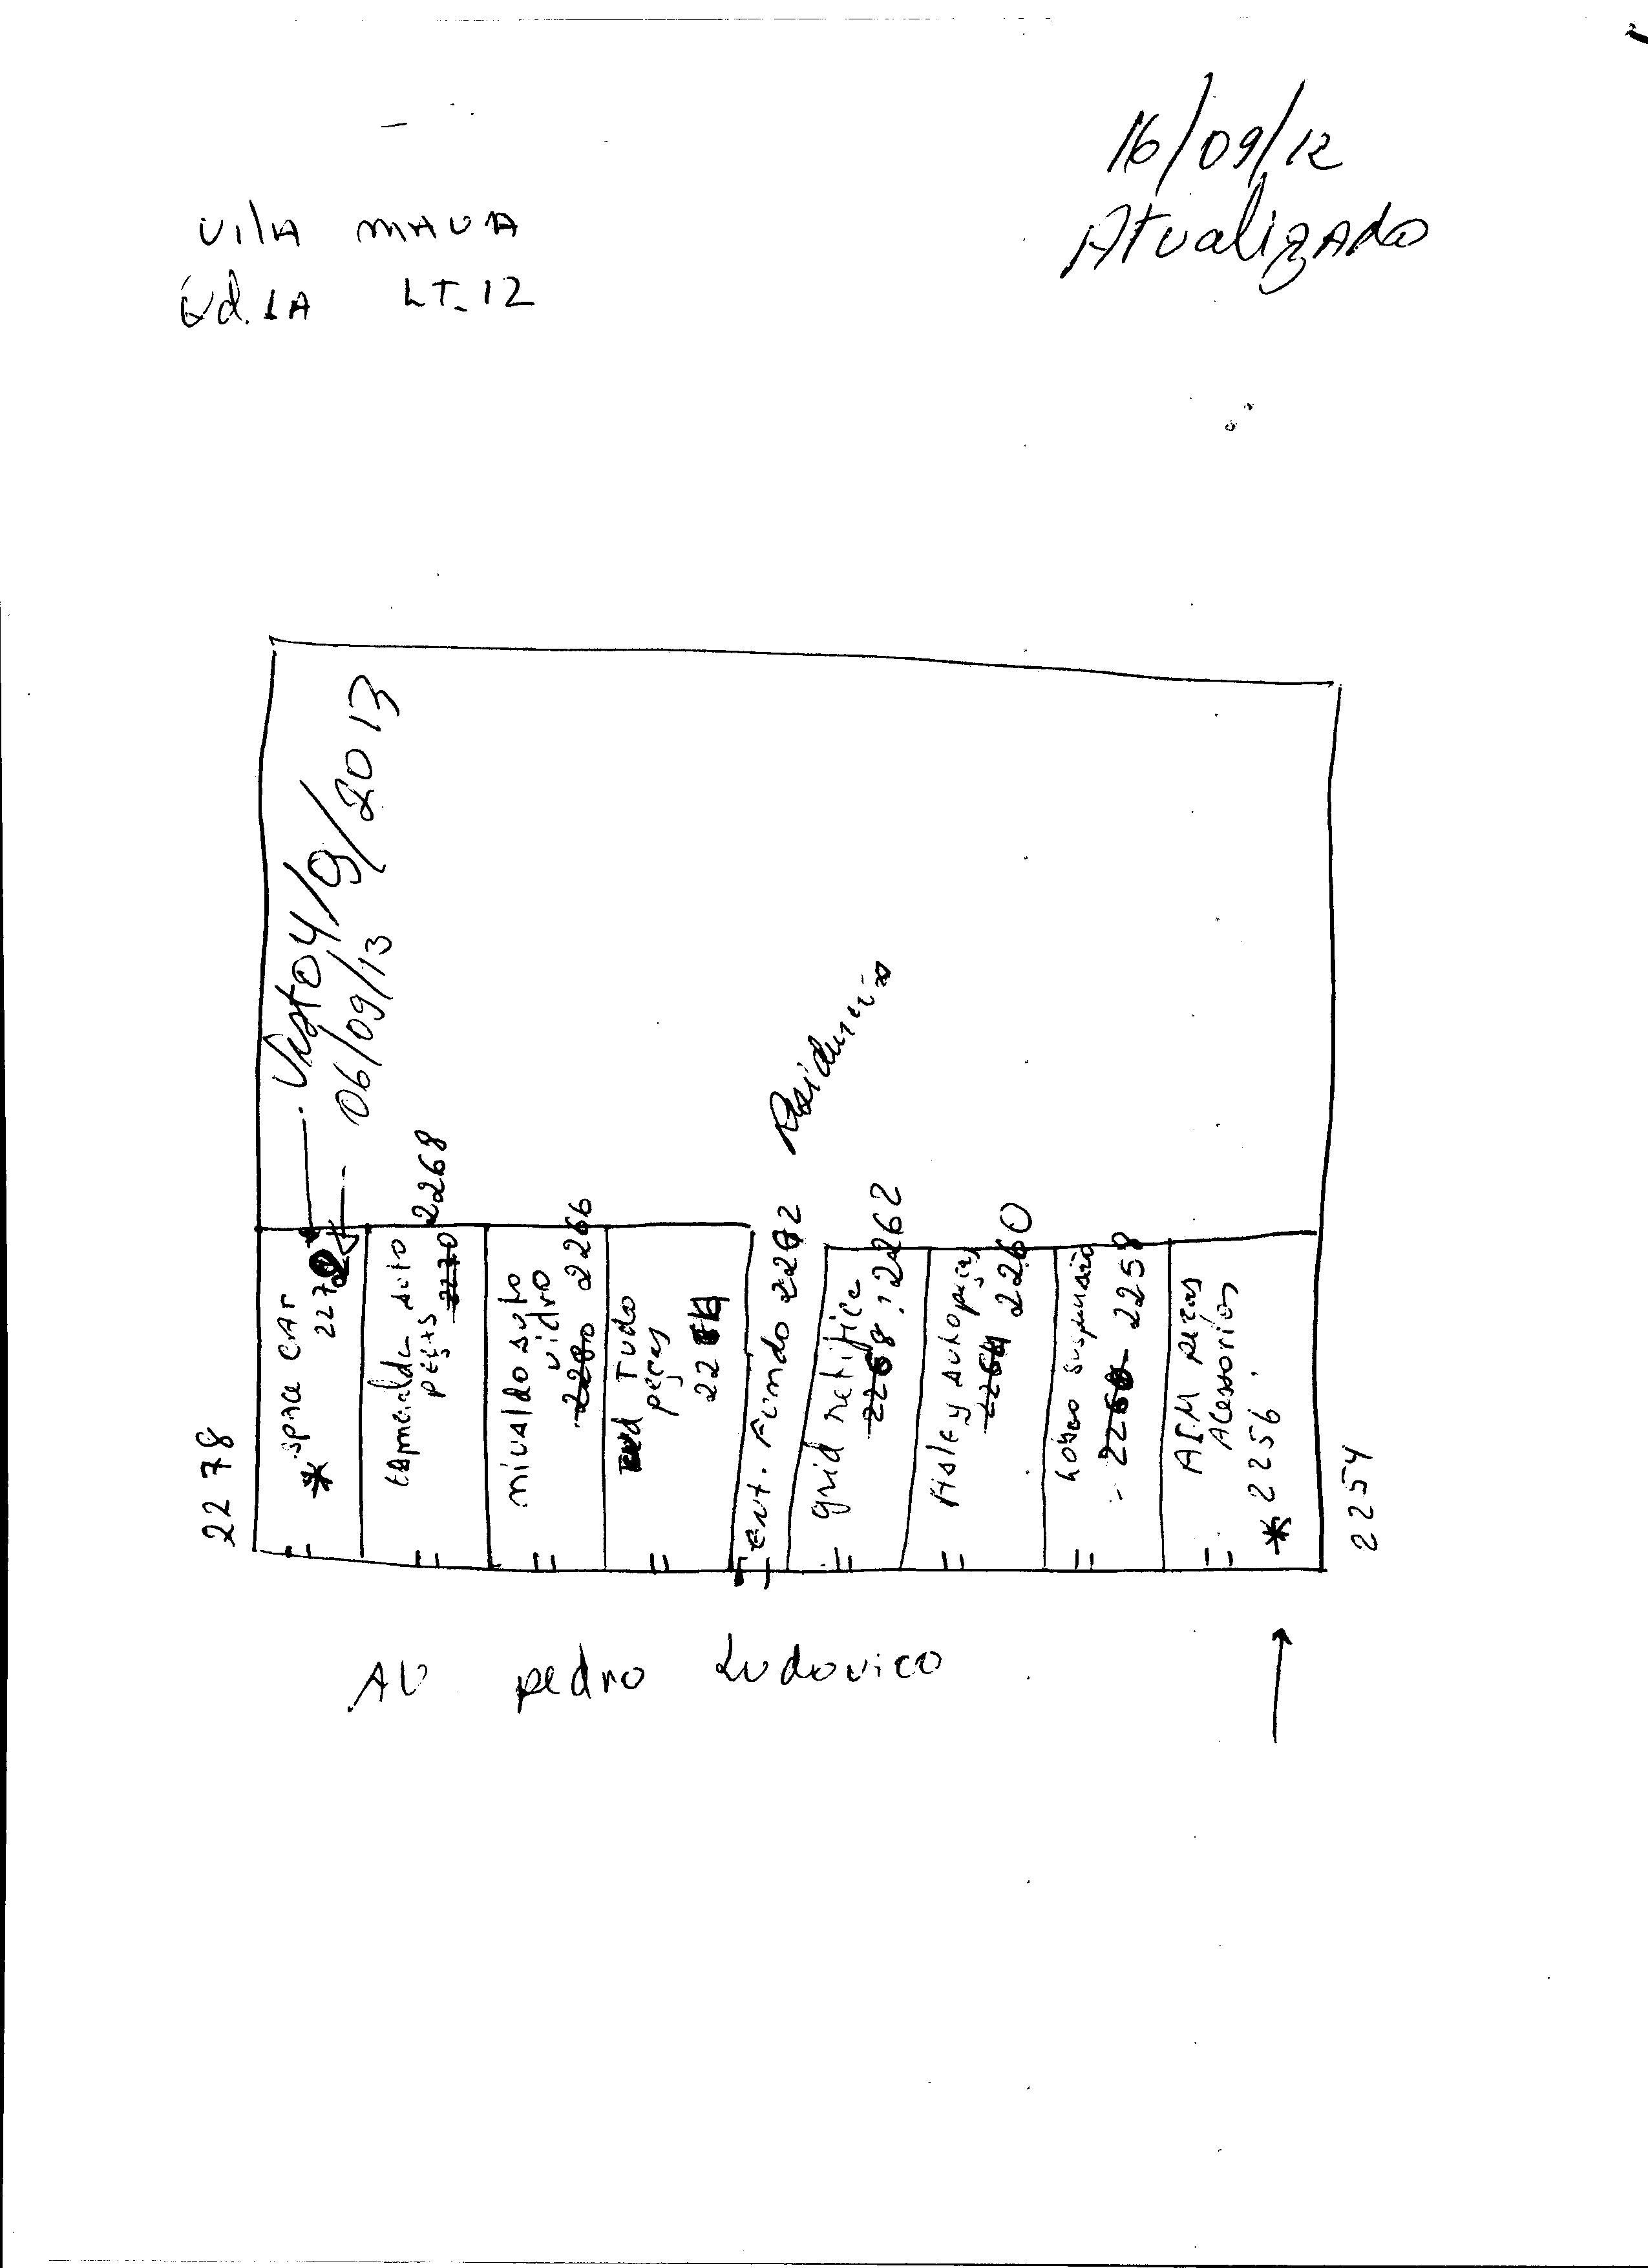 16/09/12
Atualizado
VilA MAUA
Qd.1A LT-12
Visto 4/9/2013
06/09/13
Residencia
2278
* Space CAr
227
Esmeralda auto
peças 2270 2268
nivaldo auto
vidro
2266
Tudo
peças
ent. Fundo
grid retifica
2268 : 2262
Aisley autopeças
2264 2260
Lobao suspensão
2258
AIM peças
Acessorios
* 2256.
2254
AV pedro Ludovico